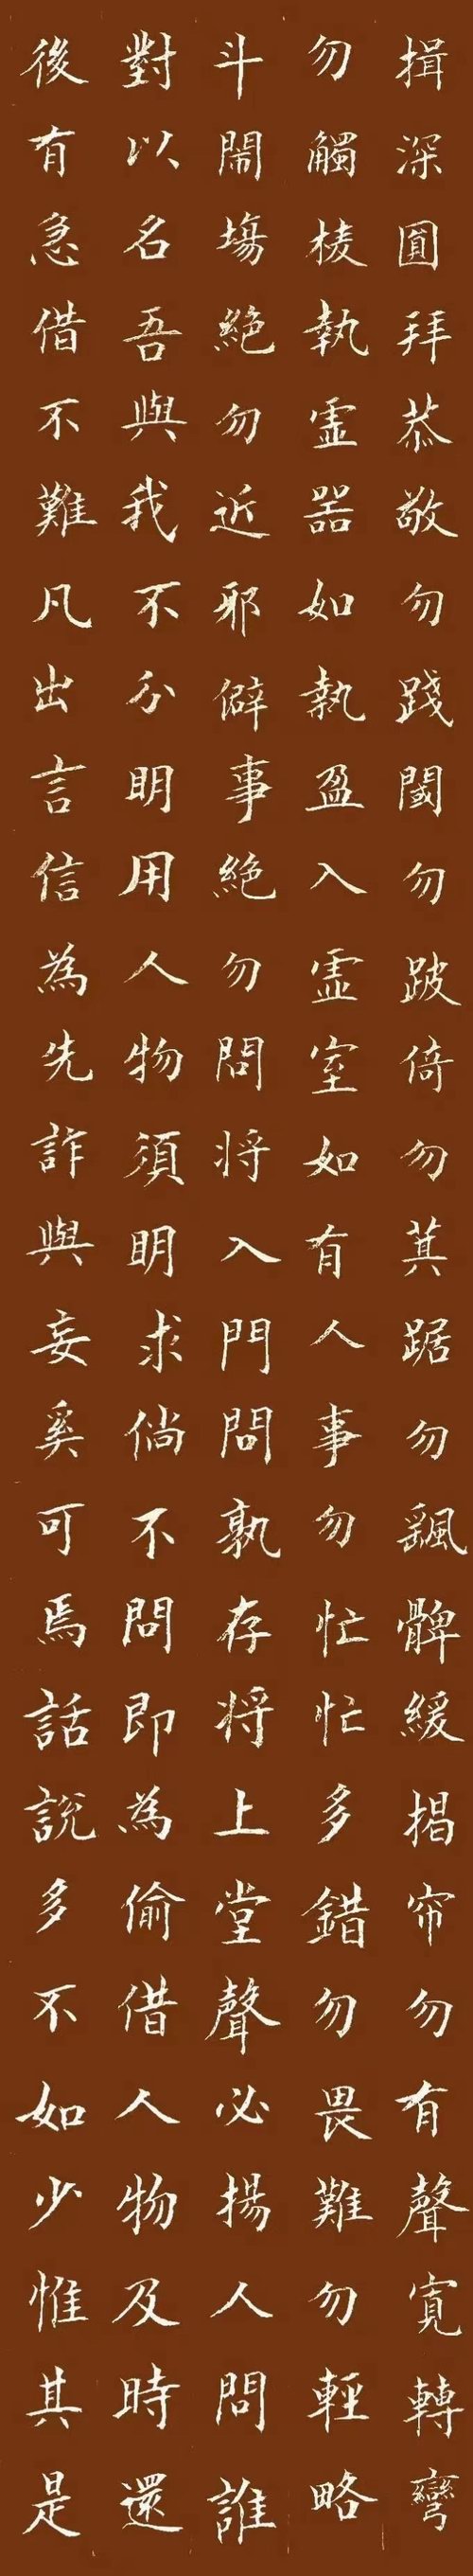 揖深圓拜恭敬勿踐閾勿跛倚勿箕踞勿颻髀緩揭帘勿有聲寬轉彎
勿觸棱執虛器如執盈入虛室如有人事勿忙忙多錯勿畏難勿輕略
斗鬧場絕勿近邪僻事絕勿問將入門問孰存將上堂聲必揚人問誰
對以名吾與我不分明用人物須明求倘不問即為偷借人物及時還
後有急借不難凡出言信為先詐與妄奚可焉話說多不如少惟其是